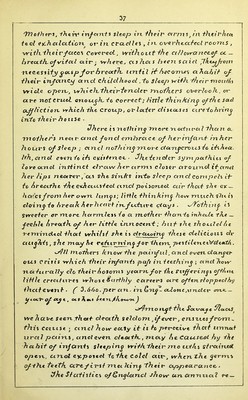 37
Mothers, their infants sleep in their arms, in their hea
ted exhalation, or in cradles, in overheated rooms,
with their faces covered, without the allowance of a
breath of vital air; where, as has been said They from
necessity gasp for breath until it becomes a habit of
their infancy and childhood, to sleep with their mouths
wide open, which their tender mothers overlook, or
are not cruel enough to correct; little thinking of the sad
affliction which the croup, or later diseases are to bring
into their house.
There is nothing more natural than a
mother's near and fond embrace of her infant in her
hours of sleep; and nothing more dangerous to its hea
lth, and even to its existence. The tender sympathies of
love and instinct draw her arms closer around it and
her lips nearer, as she sinks into sleep and compels it
to breathe the exhausted and poisoned air that she ex-
hales from her own lungs; little thinking how much she is
doing to break her heart in future days. Nothing is
sweeter or more harmless to a mother than to inhale the
feeble breath of her little innocent; but she should be
reminded that whilst she is drawing these delicious dr
aughts, she may be returning for them, pestilence & death.
All mothers know the painful, and even danger-
ous crisis which their infants pass in teething; and how
naturally do their bosoms yearn for the sufferings of these
little creatures whose earthly careers are often stopped by
that event. (3,660 per an. in Engd alone, under one
year of age, as has been shown)
Amongst the Savage Race,
we have seen that death seldom, if ever, ensues from
this cause; and how easy it is to perceive that unnat
ural pains, and even death, may be caused by the
habit of infants sleeping with their mouths strained
open, and exposed to the cold air, when the germs
of the teeth are first making their appearance.
The Statistics of England show an annual re-